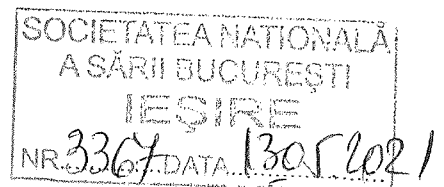 SOCIETATEA NAȚIONALĂ
A SĂRII BUCUREȘTI
IEȘIRE
NR. 3367 DATA 13 05 2021